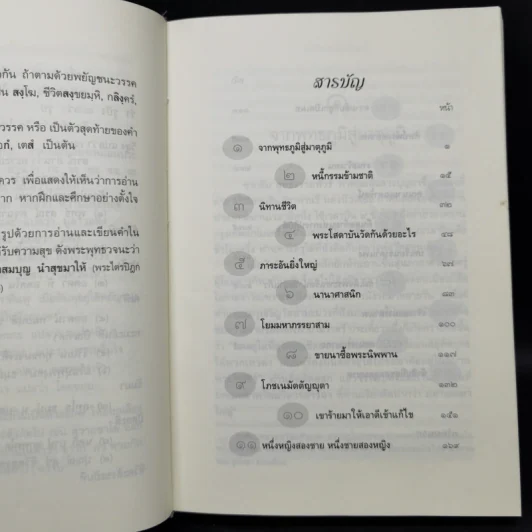 กัน ถ้าตามด้วยพยัญชนะวรรค
สงฺโฆ, ชีวิตสงฺขยมฺหิ, กลิงฺครํ,
วรรค หรือ เป็นตัวสุดท้ายของคำ
เตสํ เป็นต้น
ควร เพื่อแสดงให้เห็นว่าการอ่าน
หากฝึกและศึกษาอย่างตั้งใจ
รูปด้วยการอ่านและเขียนคำใน
รับความสุข ดังพระพุทธวจนะว่า
สมบุญ นำสุขมาให้ (พระไตรปิฎก
สารบัญ
หน้า
๑ จากพุทธภูมิสู่มาตุภูมิ ๑
๒ หนี้กรรมข้ามชาติ ๑๕
๓ นิทานชีวิต ๓๒
๔ พระโสดาบันวัดกันด้วยอะไร ๔๘
๕ ภาระอันยิ่งใหญ่ ๖๗
๖ นานาศาสนิก ๘๓
๗ โยมมหากรรยาสาม ๑๐๐
๘ ชายนาซื้อพระนิพพาน ๑๑๗
๙ โภชเนมัตตัญญุตา ๑๓๒
๑๐ เขาร้ายมาให้เอาดีเข้าแก้ไข ๑๕๑
๑๑ หนึ่งหญิงสองชาย หนึ่งชายสองหญิง ๑๖๙